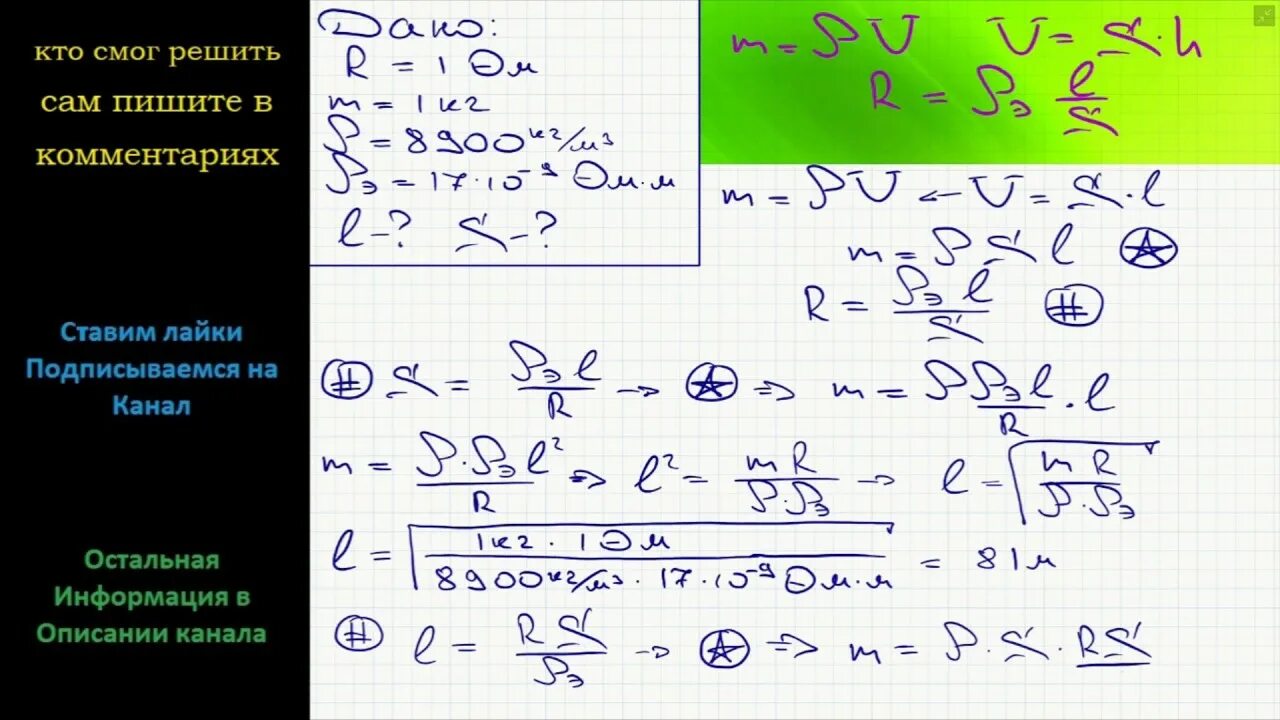 кто смог решить
сам пишите в
комментариях
Ставим лайки
Подписываемся на
Канал
Остальная
Информация в
Описании канала
Дано:
R = 1 Ом
m = 1 кг
ρ = 8900 кг/м³
ρэ = 17·10⁻⁹ Ом·м
l - ? S - ?
m = ρV V = S·h
R = ρэ l/S
m = ρV ← V = S·l
m = ρ S l ★
R = ρэ l / S #
# S = ρэ l / R → ★ ⇒ m = ρ ρэ l / R · l
m = ρ·ρэ l² / R ⇒ l² = m R / ρ·ρэ → l = √(m R / ρ·ρэ)
l = √(1 кг · 1 Ом / 8900 кг/м³ · 17·10⁻⁹ Ом·м) = 81 м
# l = R S / ρэ → ★ ⇒ m = ρ·S·RS